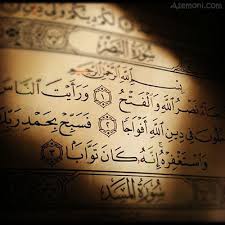 Azemoni.com
سُورَةُ النَّصْرِ
بِسْمِ اللَّهِ الرَّحْمَٰنِ الرَّحِيمِ
جَاءَ نَصْرُ اللَّهِ وَالْفَتْحُ ۝١ وَرَأَيْتَ النَّاسَ
خُلُونَ فِي دِينِ اللَّهِ أَفْوَاجًا ۝٢ فَسَبِّحْ بِحَمْدِ رَبِّكَ
وَاسْتَغْفِرْهُ إِنَّهُ كَانَ تَوَّابًا ۝٣
سُورَةُ الْمَسَدِ